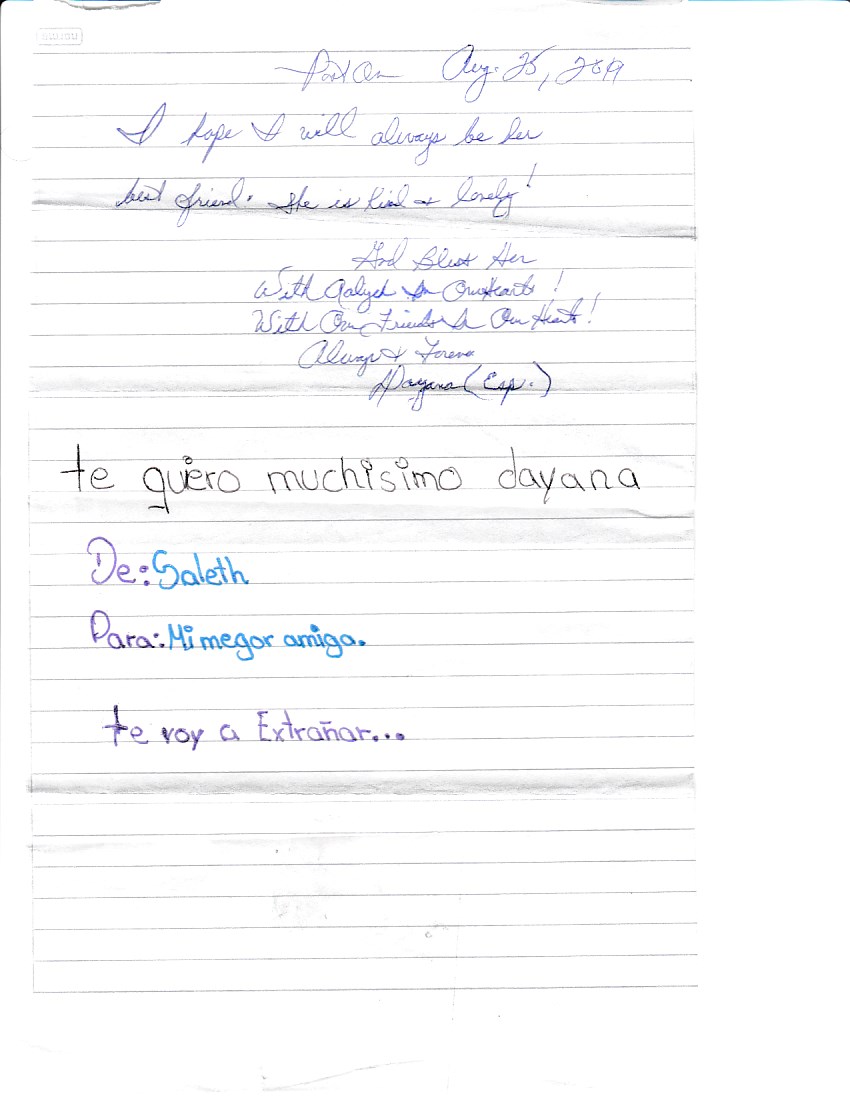 Post On Aug. 25, 2019
I hope I will always be her
best friend. She is kind & lovely!
God Bless Her
With Aaliyah In Our Hearts!
With Our Friends In Our Hearts!
Always & Forever
Dayana (Esp.)
te quiero muchisimo dayana
De: Saleth
Para: Mi megor amiga.
te voy a Extrañar...